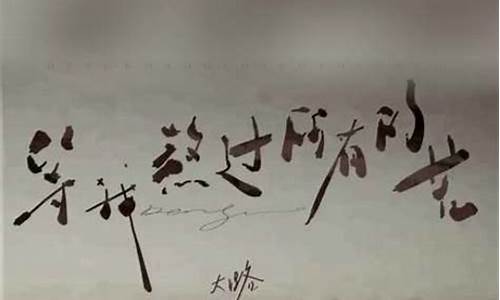 等我熬过所有的苦
大路